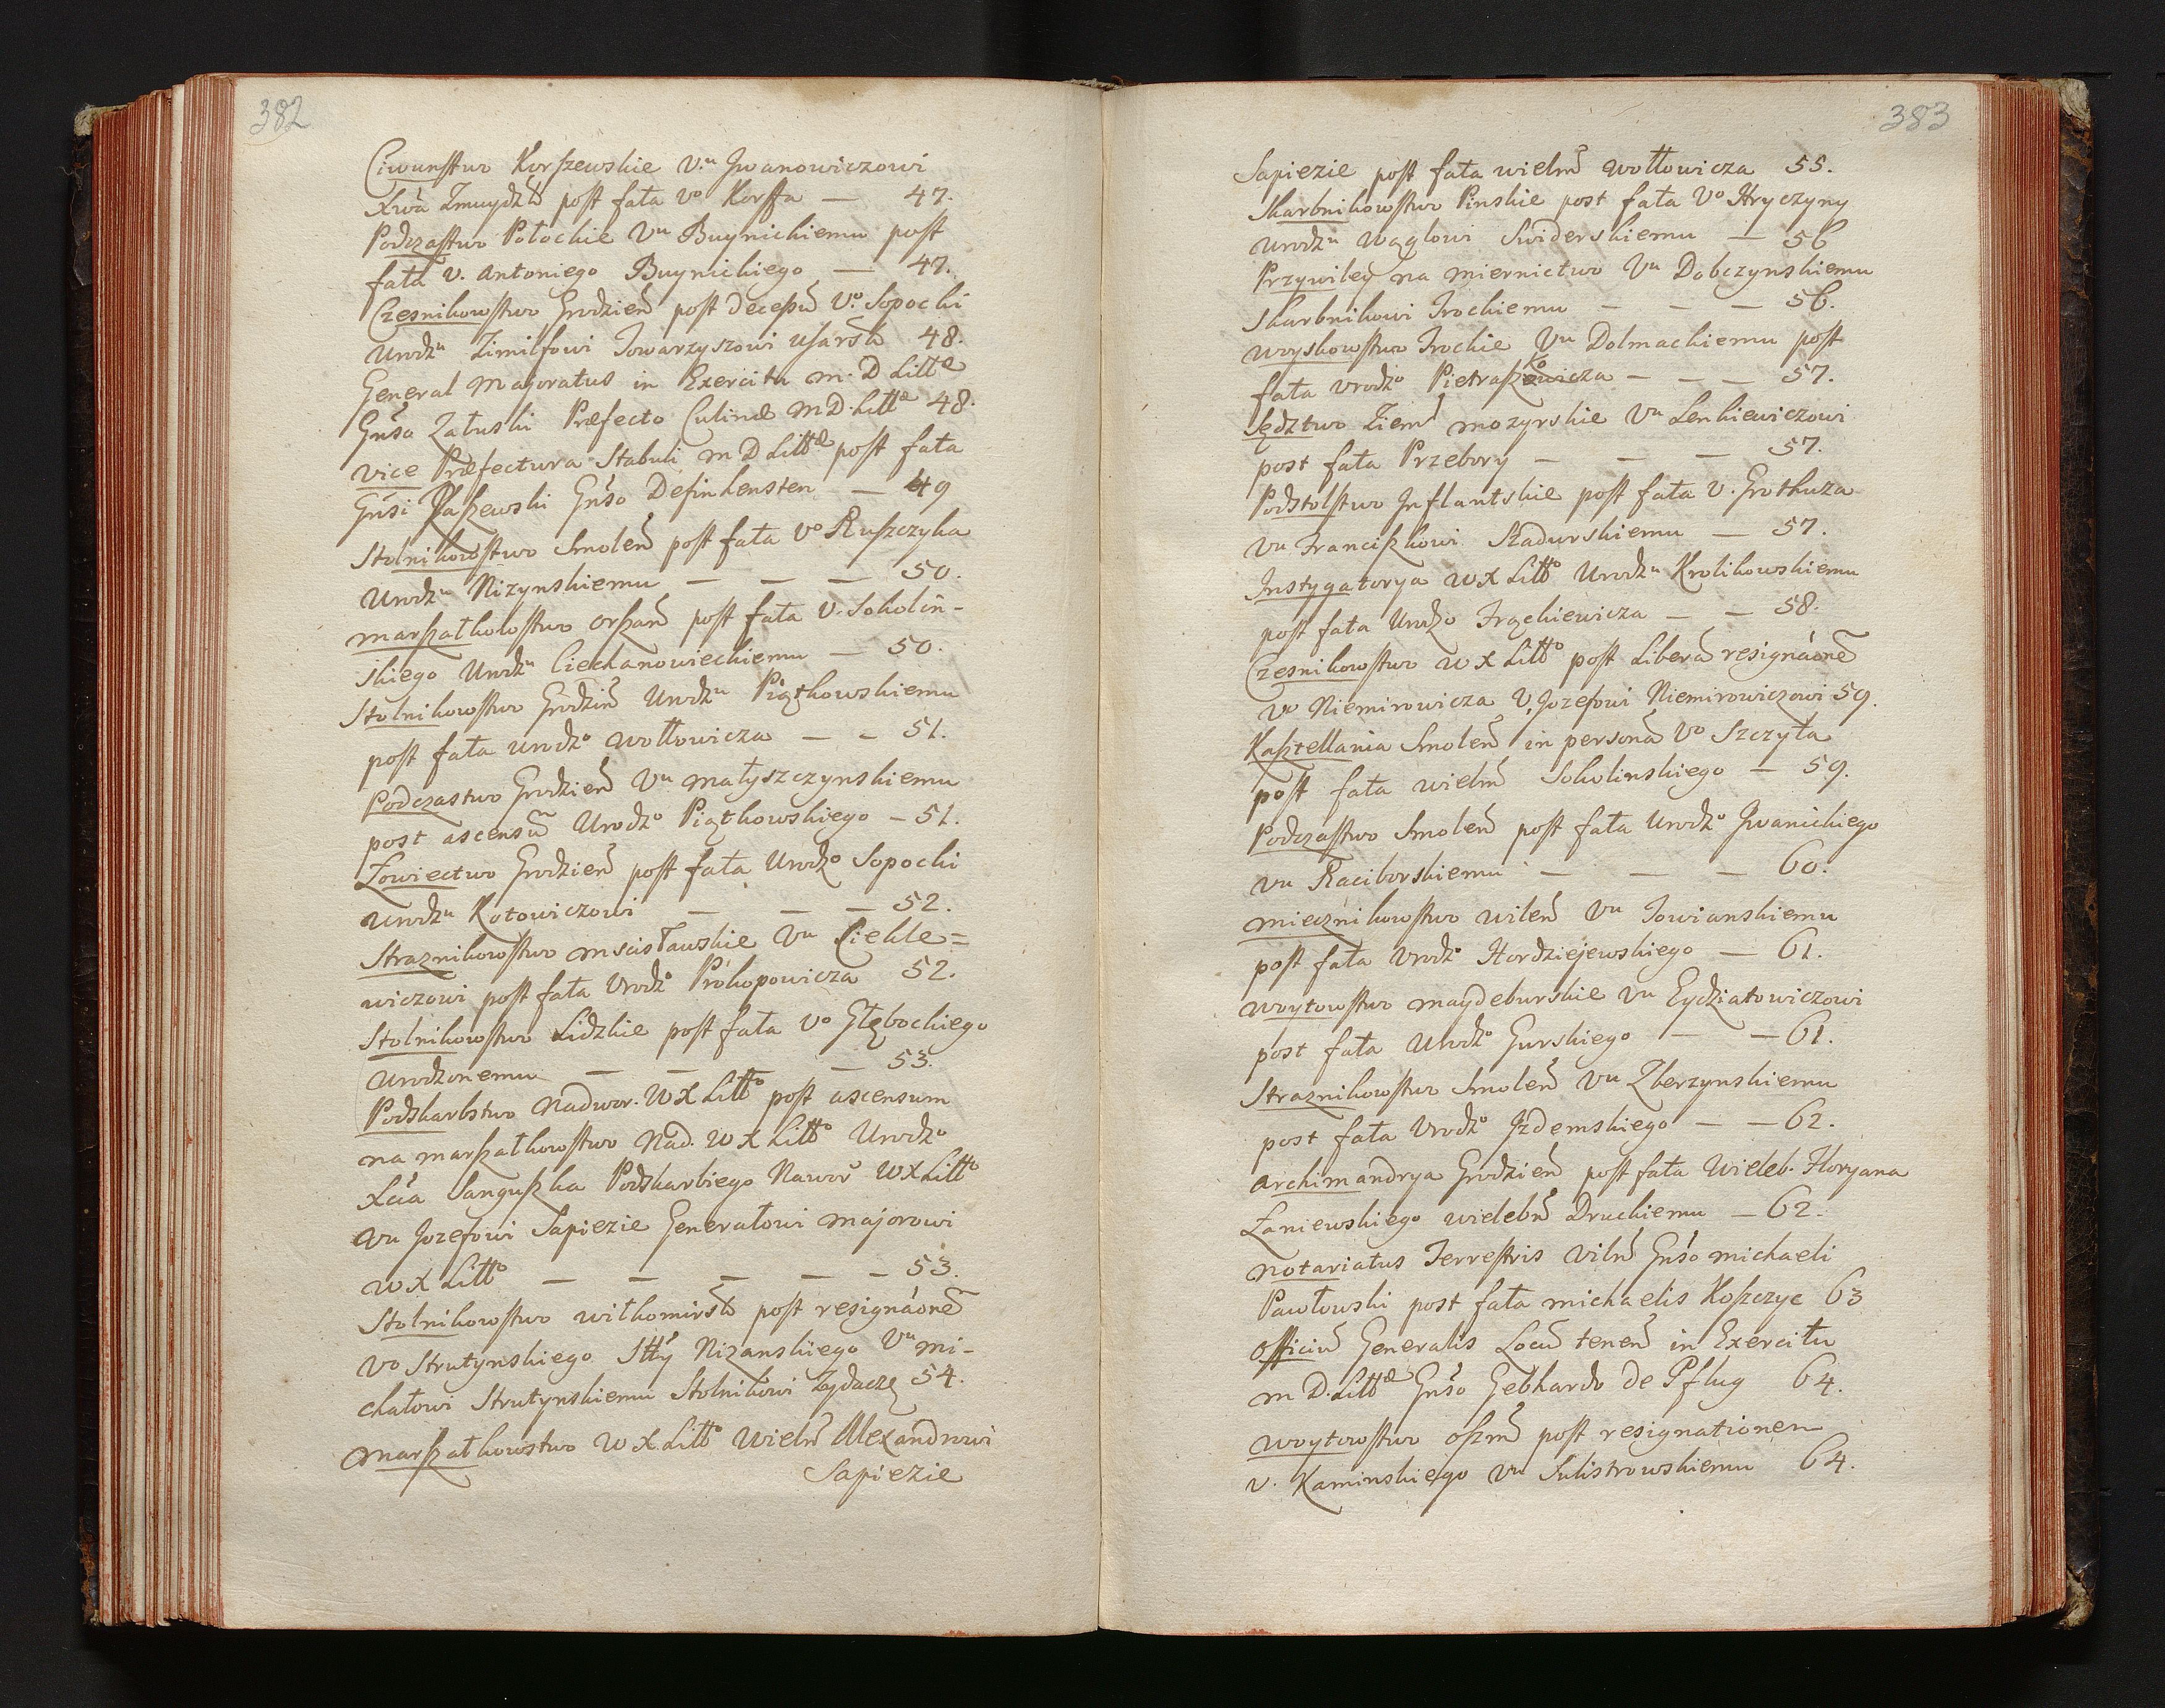 382
Ciwunstwo Korszewskie Vu Jwanowiczowi
Xwa Zmuydzk post fata Vo Korffa — 47.
Podczastwo Połockie Vu Buynickiemu post
fata V. Antoniego Buynickiego — 47.
Czesnikowstwo Grodzień post decessu Vo Sopocki
Urodzu Zimilfowi Towarzyszowi usarsk 48.
General Majoratus in Exercitu M. D Litt
Gnso Załuski Præfecto Culinæ M D. Litt 48.
Vice Præfectura Stabuli M D Litt post fata
Gnsi Paszewski Gnso Definhensten — 49
Stolnikowstwo Smoleń post fata Vo Ruszczyka
Urodzu Nizynskiemu — — — 50.
Marszałkowstwo Orszań post fata V. Sokolin-
skiego Urodzu Ciechanowieckiemu — 50.
Stolnikowstwo Grodzień Urodzu Piątkowskiemu
post fata urodzo Wołłowicza — — 51.
Podczastwo Grodzień Vu Małyszczynskiemu
post ascensu Urodzo Piątkowskiego — 51.
Łowiectwo Grodzień post fata Urodzo Sopocki
Urodzu Kotowiczowi — — — 52.
Straznikowstwo Mscisławskie Vu Ciekle=
wiczowi post fata Urodzo Prokopowicza 52.
Stolnikowstwo Lidzkie post fata Vo Głębockiego
Urodzonemu — — — 53.
Podskarbstwo Nadwor. W X Litto post ascensum
na marszałkowstwo Nad. W X Litto Urodzo
Xcia Sanguszka Podskarbiego Nawor W X Litto
Vu Jozefowi Sapiezie Generałowi Majorowi
W X Litto — — — — — 53.
Stolnikowstwo Wiłkomirsk post resignaone
Vo Strutynskiego Stty Nizanskiego Vu Mi-
chałowi Strutynskiemu Stolnikowi Zydacz 54.
Marszałkowstwo W X Litto Wielm Alexandrowi
Sapiezie
383
Sapiezie post fata wielm Wołłowicza 55.
Skarbnikowstwo Pinskie post fata Vo Hryczyny
Urodzu Wąglowi Swiderskiemu — 56
Przywiley na Miernictwo Vu Dobczynskiemu
Skarbnikowi Trockiemu — — — 56.
Woyskowstwo Trockie Vu Dolmackiemu post
fata Urodzo Pietraszkowicza — — — 57.
Sędztwo Ziem Mozyrskie Vu Lenkiewiczowi
post fata Przebory — — — 57.
Podstolstwo Jnflantskie post fata V. Grothuza
Vu Franciszkowi Szadurskiemu — 57.
Instygatorya W X Litto Urodzu Krolikowskiemu
post fata Urodzo Frąckiewicza — — 58.
Czesnikowstwo W X Litto post Libera resignaone
Vo Niemirowicza V. Jozefowi Niemirowiczowi 59.
Kasztellania Smoleń in persona Vo Szczyta
post fata wielm Sokolinskiego — 59.
Podczastwo Smoleń post fata Urodzo Jwanickiego
Vu Raciborskiemu — — — 60.
Miecznikowstwo Wileń Vu Towianskiemu
post fata Urodzo Hordziejewskiego — 61.
Woytowstwo Maydeburskie Vu Eydziatowiczowi
post fata Urodzo Gurskiego — — 61.
Straznikowstwo Smoleń Vu Zberzynskiemu
post fata Urodzo Jzdemskiego — — 62.
Archimandrya Grodzień post fata Wieleb. Floryana
Łaniewskiego wielebn Druckiemu — 62.
Notariatus Terrestris Viln Gnso Michaeli
Pawłowski post fata Michaelis Koszczyc 63
Officiu Generalis Locu tenen in Exercitu
M D. Litt Gnso Gebhardo de Pflug 64.
Woytowstwo Oszm post resignationem
V. Kaminskiego Vu Sulistrowskiemu 64.